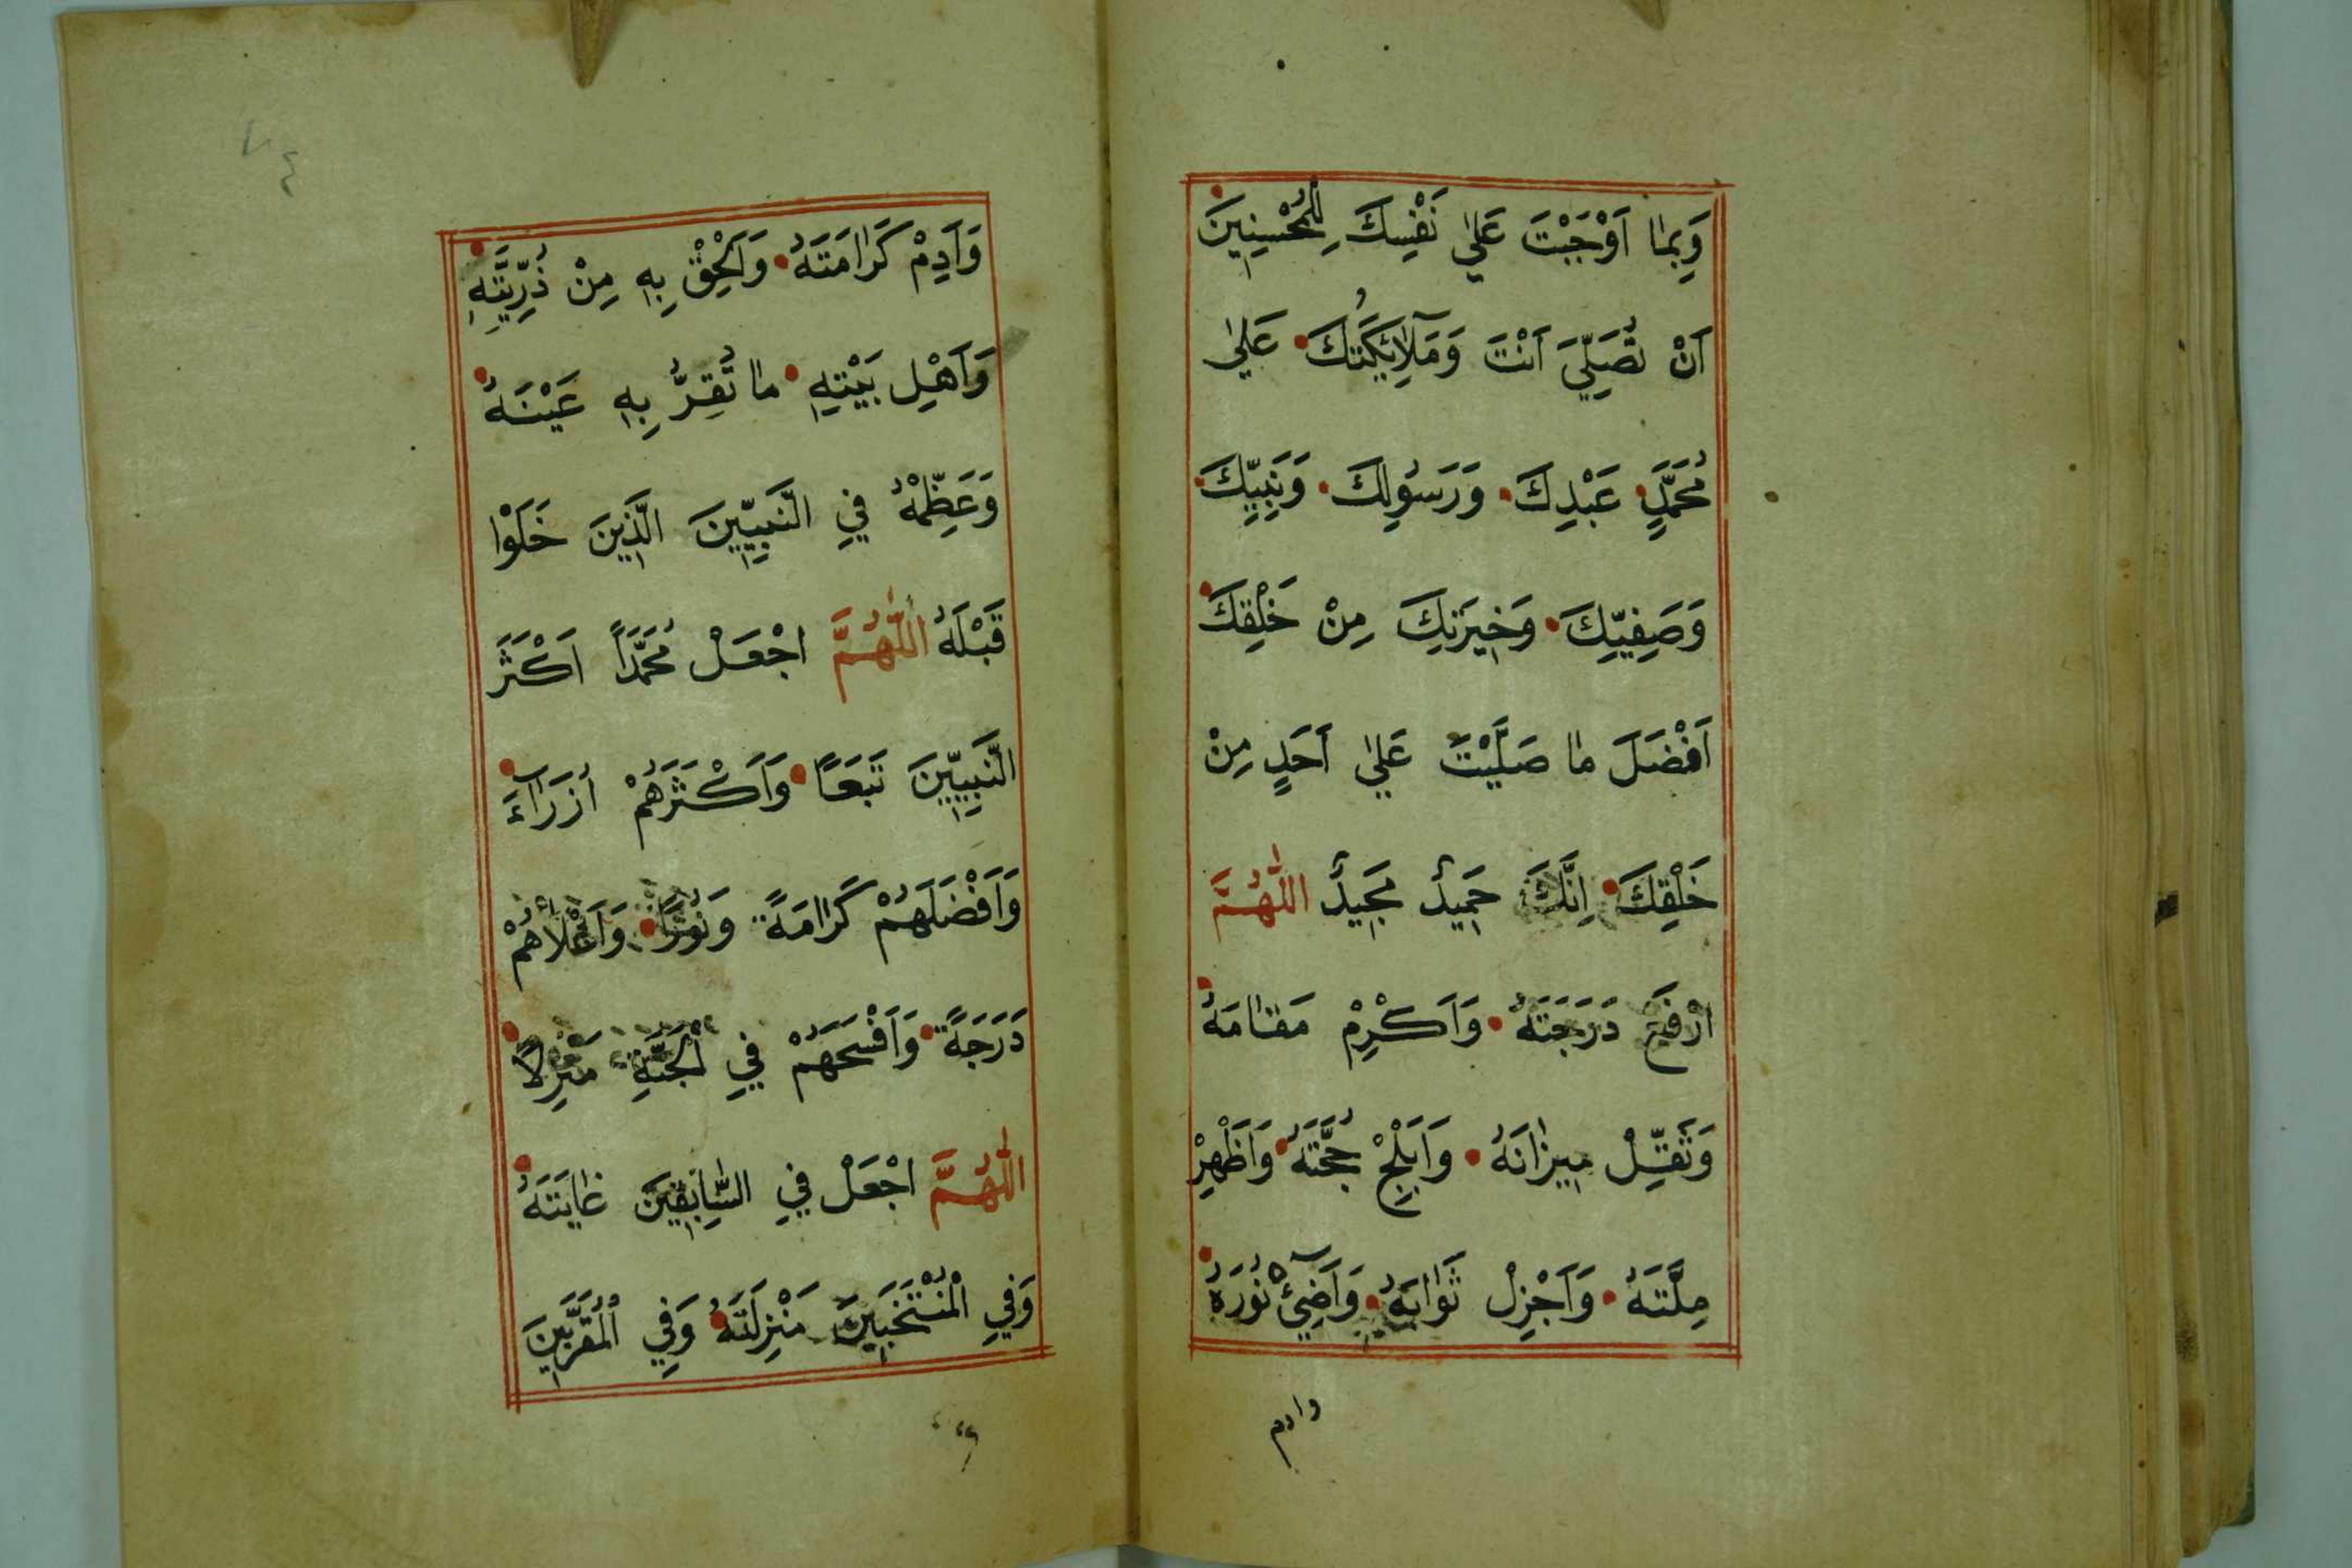 وَبِمَا اَوْجَبْتَ عَلٰي نَفْسِكَ لِلْمُحْسِنِينَ
اَنْ تُصَلِّيَ اَنْتَ وَمَلَآئِكَتُكَ عَلٰي
مُحَمَّدٍ عَبْدِكَ وَرَسُولِكَ وَنَبِيِّكَ
وَصَفِيِّكَ وَخِيرَتِكَ مِنْ خَلْقِكَ
اَفْضَلَ مَا صَلَّيْتَ عَلٰي اَحَدٍ مِنْ
خَلْقِكَ اِنَّكَ حَمِيدٌ مَجِيدٌ اَللّٰهُمَّ
ارْفَعْ دَرَجَتَهُ وَاَكْرِمْ مَقَامَهُ
وَثَقِّلْ مِيزَانَهُ وَاَبْلِجْ حُجَّتَهُ وَاَظْهِرْ
مِلَّتَهُ وَاَجْزِلْ ثَوَابَهُ وَاَضِئْ نُورَهُ
وادم
٧٤
وَاَدِمْ كَرَامَتَهُ وَاَلْحِقْ بِهِ مِنْ ذُرِّيَّتِهِ
وَاَهْلِ بَيْتِهِ مَا تُقِرُّ بِهِ عَيْنَهُ
وَعَظِّمْهُ فِي النَّبِيِّينَ الَّذِينَ خَلَوْا
قَبْلَهُ اَللّٰهُمَّ اجْعَلْ مُحَمَّدًا اَكْثَرَ
النَّبِيِّينَ تَبَعًا وَاَكْثَرَهُمْ اُزَرَاءَ
وَاَفْضَلَهُمْ كَرَامَةً وَنُورًا وَاَعْلَاهُمْ
دَرَجَةً وَاَفْسَحَهُمْ فِي الْجَنَّةِ مَنْزِلًا
اَللّٰهُمَّ اجْعَلْ فِي السَّابِقِينَ غَايَتَهُ
وَفِي الْمُنْتَخَبِينَ مَنْزِلَتَهُ وَفِي الْمُقَرَّبِينَ